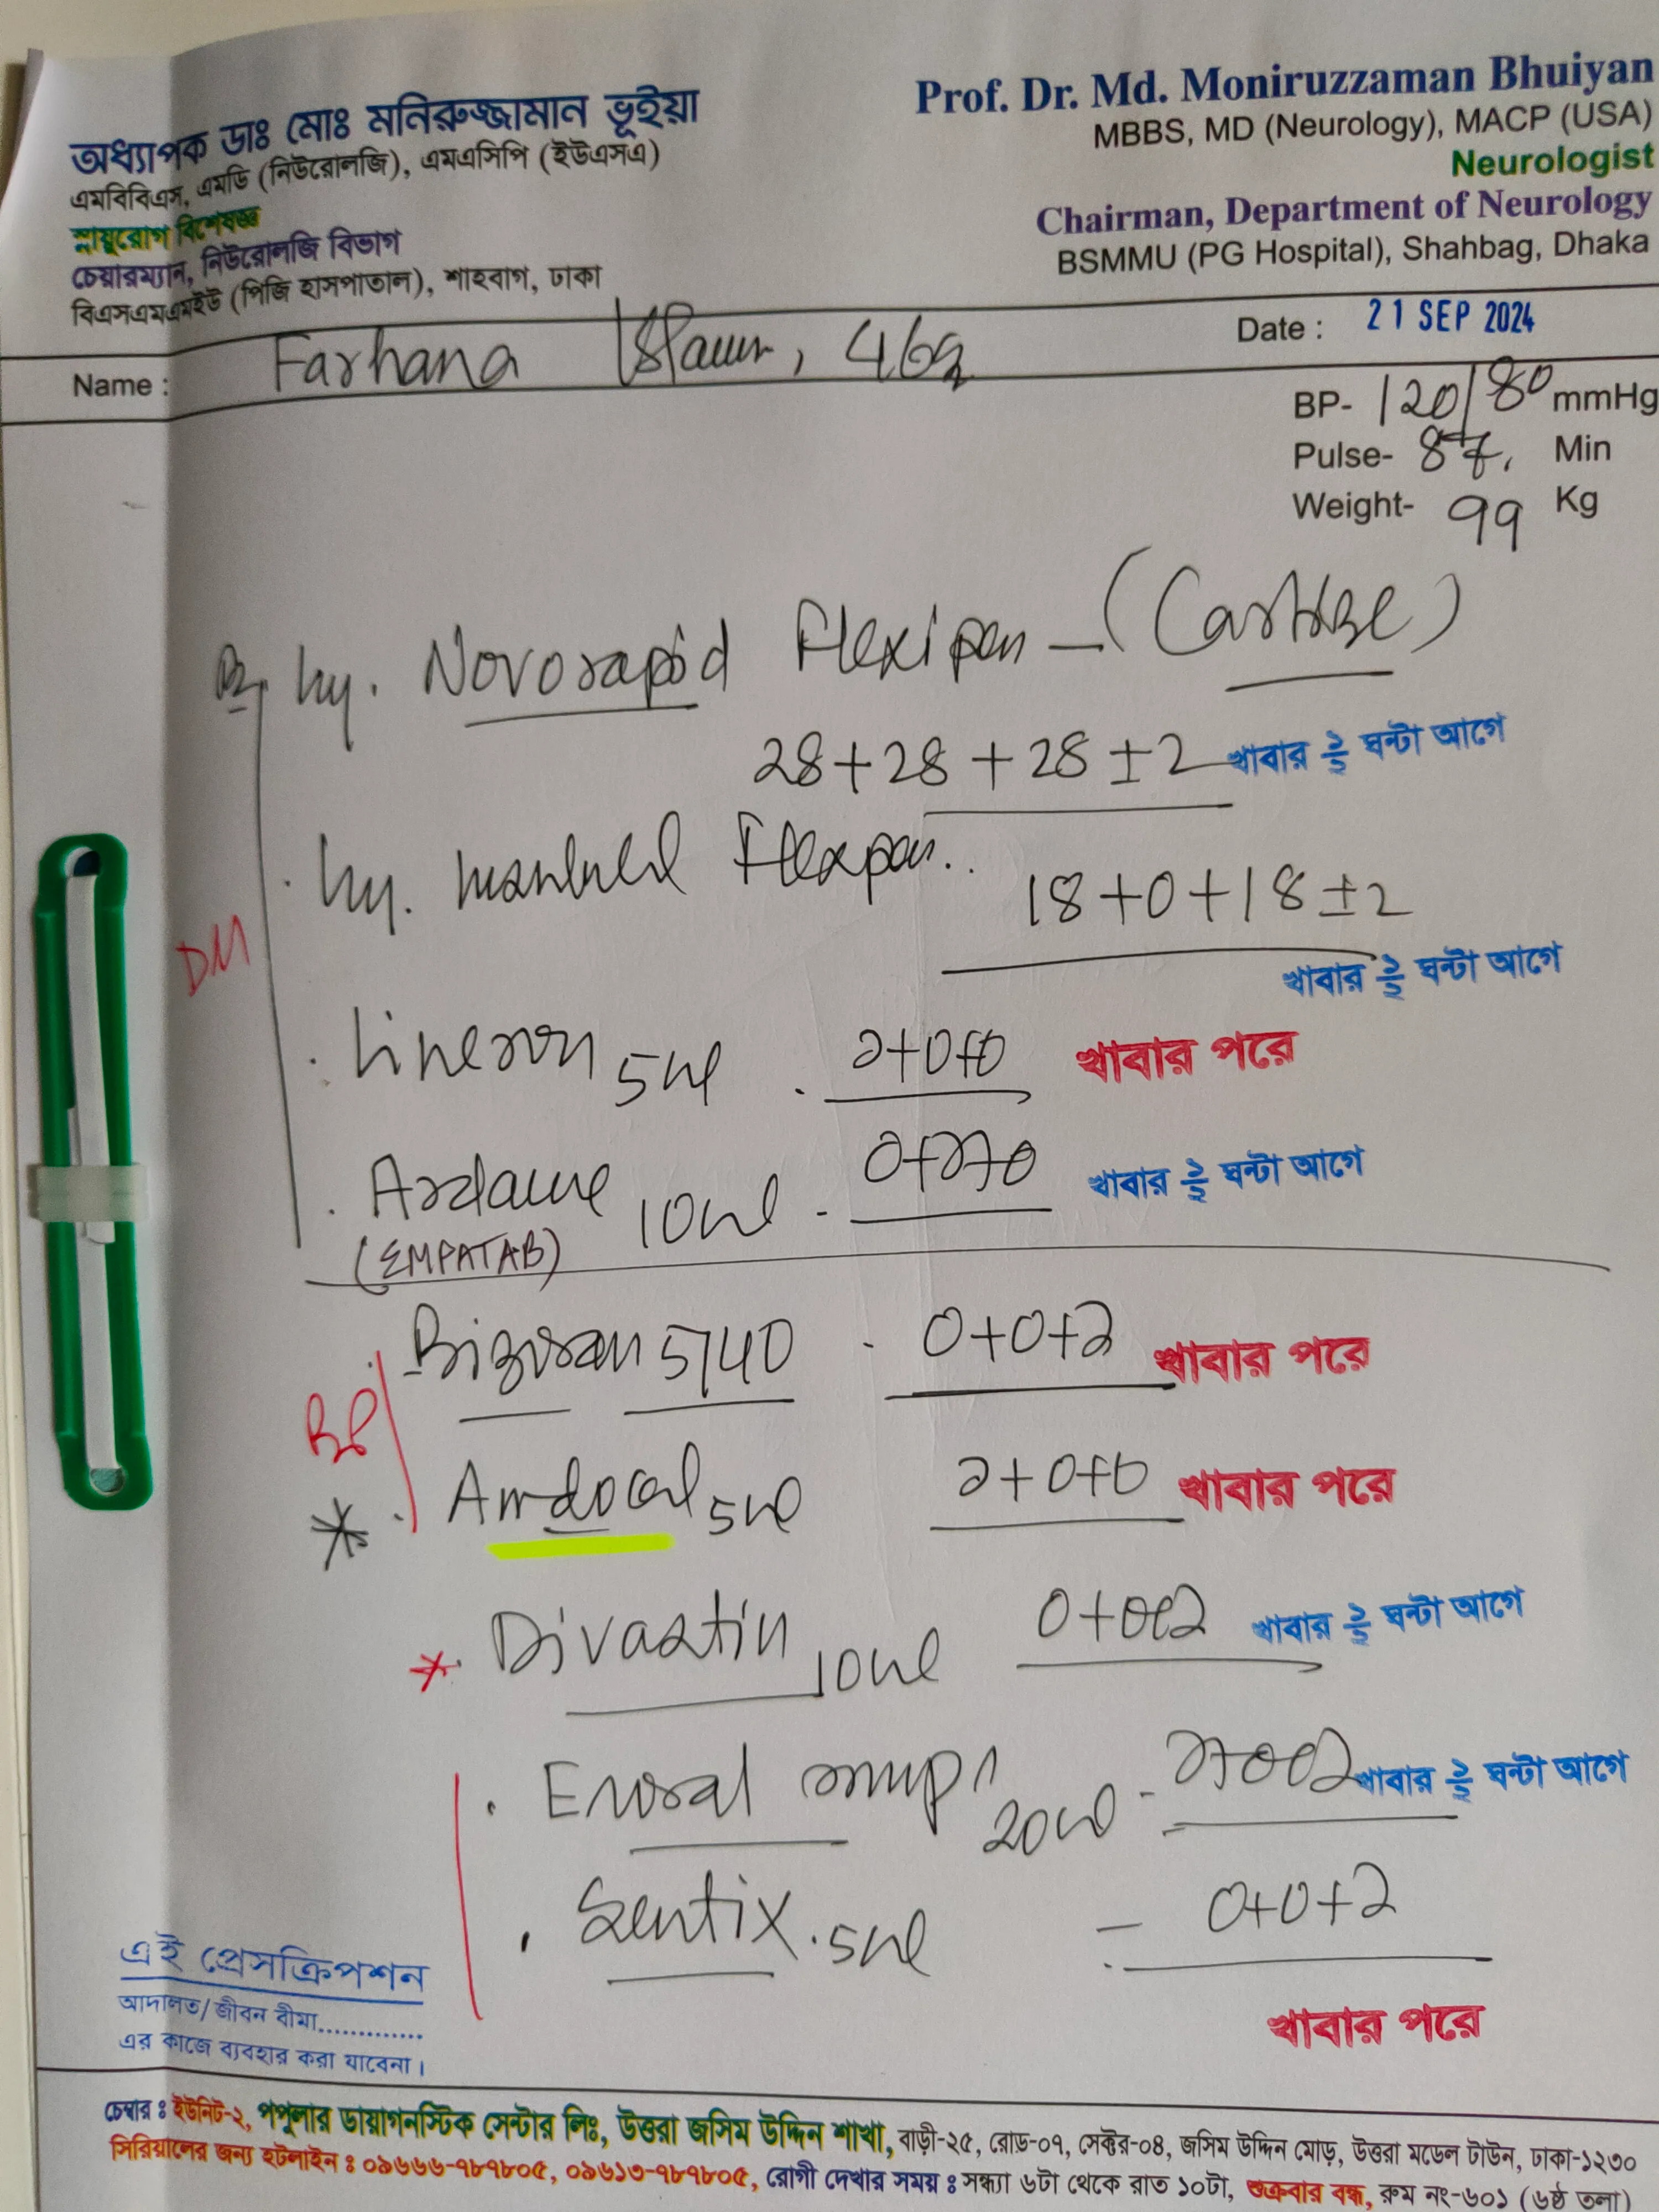 অধ্যাপক ডাঃ মোঃ মনিরুজ্জামান ভূইয়া
এমবিবিএস, এমডি (নিউরোলজি), এমএসিপি (ইউএসএ)
স্নায়ুরোগ বিশেষজ্ঞ
চেয়ারম্যান, নিউরোলজি বিভাগ
বিএসএমএমইউ (পিজি হাসপাতাল), শাহবাগ, ঢাকা
Prof. Dr. Md. Moniruzzaman Bhuiyan
MBBS, MD (Neurology), MACP (USA)
Neurologist
Chairman, Department of Neurology
BSMMU (PG Hospital), Shahbag, Dhaka
Name : Farhana Islam, 46
Date : 21 SEP 2024
BP- 120/80 mmHg
Pulse- 87 Min
Weight- 99 Kg
Novorapid Flexipen
28+28+28±2 খাবার ১/২ ঘন্টা আগে
Flexpen
18+0+18±2
খাবার ১/২ ঘন্টা আগে
DM
5 ১+0+0 খাবার পরে
10 0+১+0 খাবার ১/২ ঘন্টা আগে
(EMPATAB)
5/40 0+0+১ খাবার পরে
BP
Amdocal 5 ১+0+0 খাবার পরে
Divastin 10 0+0+১ খাবার ১/২ ঘন্টা আগে
20 ১+0+১ খাবার ১/২ ঘন্টা আগে
Sentix 5 0+0+১
খাবার পরে
এই প্রেসক্রিপশন
আদালত/জীবন বীমা.............
এর কাজে ব্যবহার করা যাবেনা।
চেম্বার ঃ ইউনিট-২, পপুলার ডায়াগনস্টিক সেন্টার লিঃ, উত্তরা জসিম উদ্দিন শাখা, বাড়ী-২৫, রোড-০৭, সেক্টর-০৪, জসিম উদ্দিন মোড়, উত্তরা মডেল টাউন, ঢাকা-১২৩০
সিরিয়ালের জন্য হটলাইন ঃ ০৯৬৬৬-৭৮৭৮০৫, ০৯৬১৩-৭৮৭৮০৫, রোগী দেখার সময় ঃ সন্ধ্যা ৬টা থেকে রাত ১০টা, শুক্রবার বন্ধ, রুম নং-৬০১ (৬ষ্ঠ তলা)